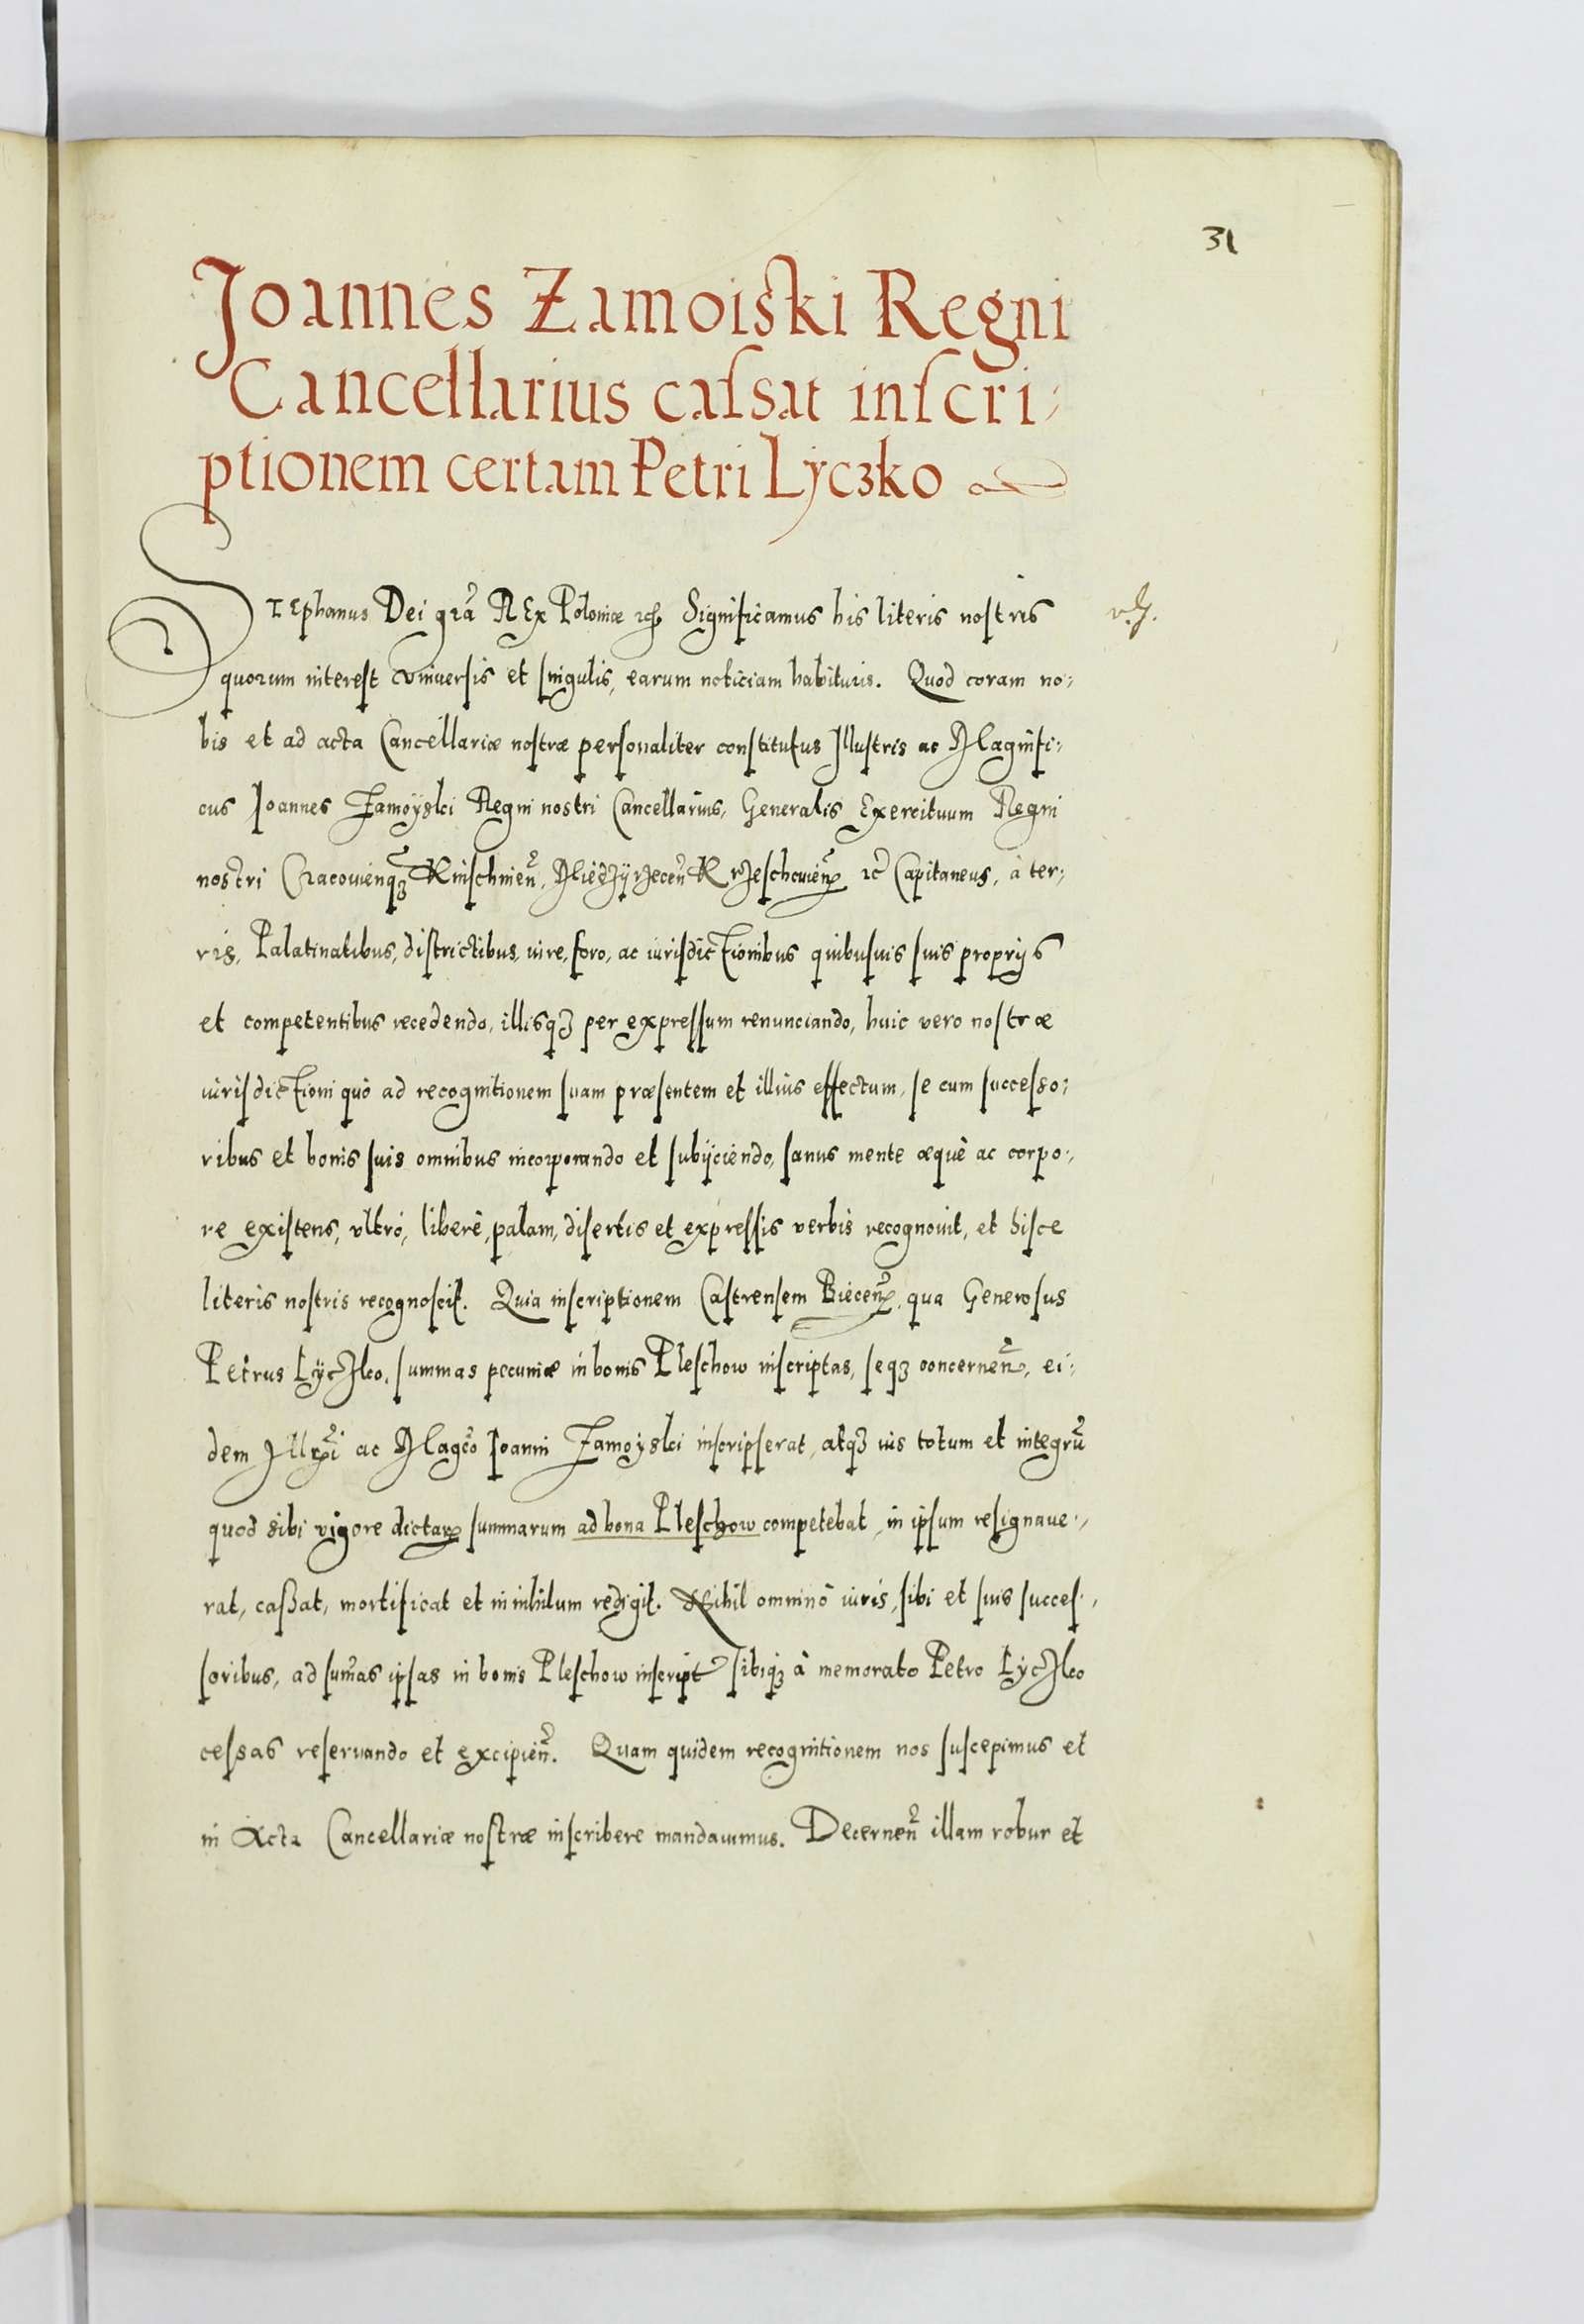 31
Joannes Zamoiski Regni
Cancellarius cassat inscri-
ptionem certam Petri Lyczko
STEphanus Dei gra REx Poloniæ Significamus his literis nostris
quorum interest vniuersis et singulis, earum noticiam habituris. Quod coram no-
bis et ad acta Cancellariæ nostræ personaliter constitutus Illustris ac Magnifi-
cus Ioannes Zamoÿski Regni nostri Cancellarius, Generalis Exercituum Regni
nostri Cracouienq3 Knischinen, Miedzÿrzecen Krzeschouien etc Capitaneus, à ter-
ris, Palatinatibus, districtibus, iure, foro, ac iurisdictionibus quibusuis suis proprijs
et competentibus recedendo, illisq3 per expressum renunciando, huic vero nostræ
iurisdictioni quò ad recognitionem suam præsentem et illius effectum, se cum successo-
ribus et bonis suis omnibus incorporando et subijciendo, sanus mente æquè ac corpo-
re existens, vltrò, liberè, palam, disertis et expressis verbis recognouit, et hisce
literis nostris recognoscit. Quia inscriptionem Castrensem Biecen, qua Generosus
Petrus Lÿczko, summas pecuniæ in bonis Pleschow inscriptas, seq3 concernen, ei-
dem Illri ac Magco Ioanni Zamoÿski inscripserat, atq3 ius totum et integrū
quod sibi vigore dictar summarum ad bona Pleschow competebat, in ipsum resignaue-
rat, caßat, mortificat et in nihilum redigit. Nihil omninò iuris, sibi et suis succes-
soribus, ad sum̃as ipsas in bonis Pleschow inscript sibiq3 à memorato Petro Lÿczko
cessas reseruando et excipien. Quam quidem recognitionem nos suscepimus et
in Acta Cancellariæ nostræ inscribere mandauimus. Decernen illam robur et